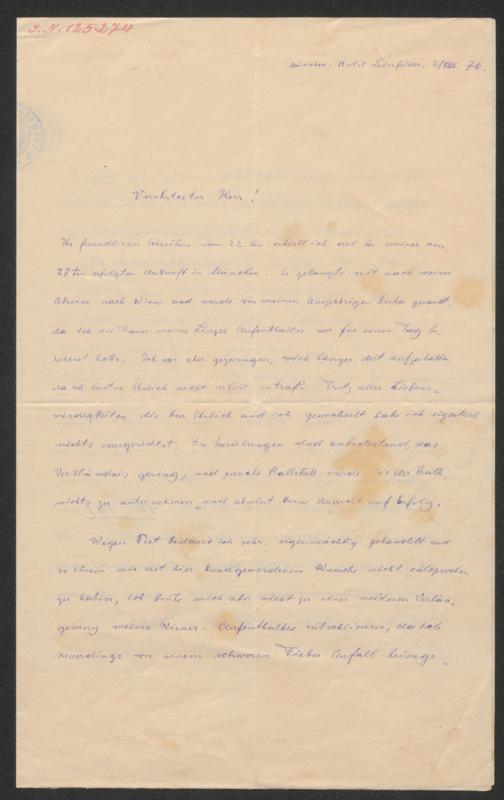 I.N. 125274
München. Hotel Leinfelder. 2/VIII 76.
Verehrtester Herr!
Ihr freundliches Schreiben vom 22. ten erhielt ich erst bei meiner am
27ten erfolgten Ankunft in München. Es gelangte erst nach meiner
Abreise nach Wien und wurde von meinen Angehörigen hieher gesandt,
da ich die Dauer meines Linzer Aufenthaltes nur für einen Tag be
rechnet hatte. Ich war aber gezwungen, mich länger dort aufzuhalten
da ich Ehrlich nicht sofort antraf. Trotz aller Liebens-
würdigkeiten die Ehrlich und ich gewechselt habe ich eigentlich
nichts ausgerichtet, die sind unbedeutend, das
Verständnis gering, und Hallstatt wurde
nichts zu unternehmen, weil absolut keine Aussicht auf Erfolg.
Wegen Pest bedaure ich sehr, eigenmächtig gehandelt und
so Ihrem mir erst hier kundgewordenen Wunsche nicht entsprochen
zu haben, ich konnte mich aber nicht zu einer weiteren Verlän-
gerung meines Wiener-Aufenthaltes entschliessen, da ich
neuerdings von einem schweren Fieber Anfall heimge-